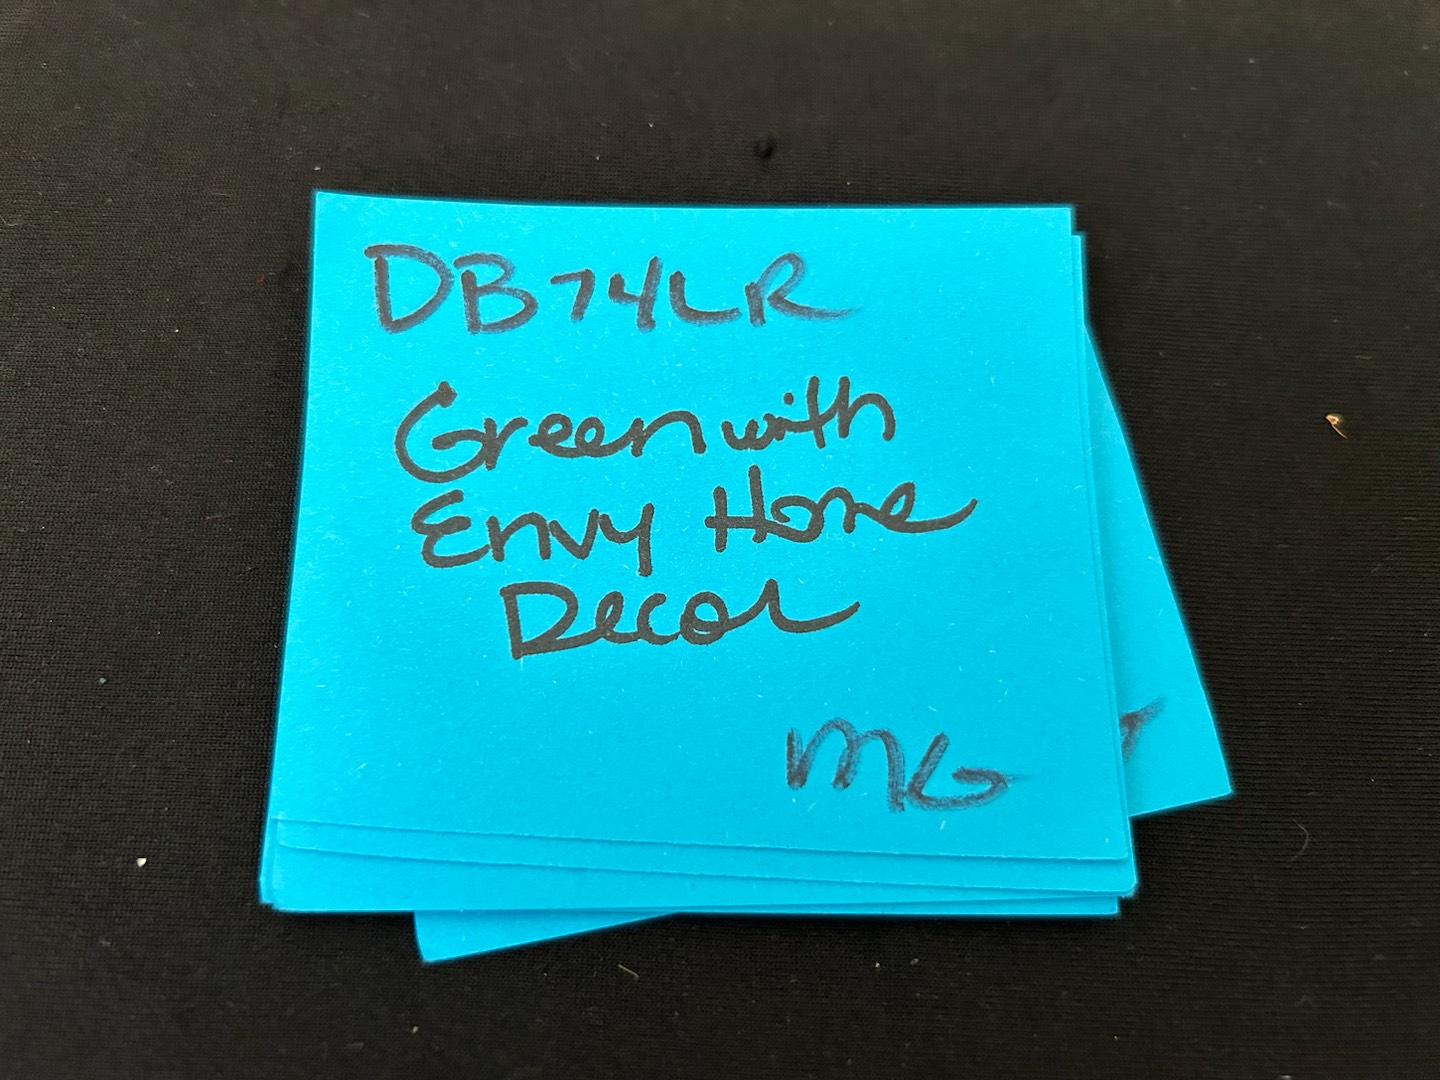 DB74LR
Green with
Envy Home
Decor
MG